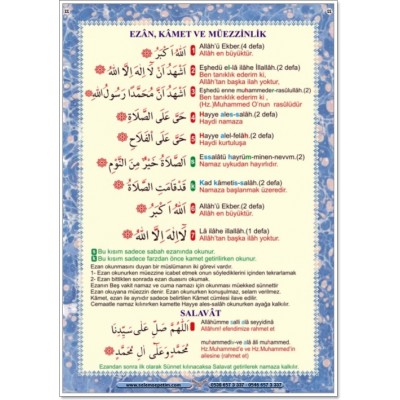 EZÂN, KÂMET VE MÜEZZİNLİK
اَللّٰهُ اَكْبَرُ 1 Allâhü Ekber.(4 defa)
Allâh en büyüktür.
اَشْهَدُ اَنْ لَا اِلٰهَ اِلَّا اللّٰهُ 2 Eşhedü el-lâ ilâhe İllallâh.(2 defa)
Ben tanıklık ederim ki,
Allâh'tan başka ilah yoktur,
اَشْهَدُ اَنَّ مُحَمَّدًا رَسُولُ اللّٰهِ 3 Eşhedü enne muhammeder-rasûlullâh.(2 defa)
Ben tanıklık ederim ki,
(Hz.)Muhammed O'nun rasûlüdür
حَىَّ عَلَى الصَّلَاةِ 4 Hayye ales-salâh.(2 defa)
Haydi namaza
حَىَّ عَلَى الْفَلَاحِ 5 Hayye alel-felâh.(2 defa)
Haydi kurtuluşa
اَلصَّلَاةُ خَيْرٌ مِنَ النَّوْمِ Essalâtü hayrüm-minen-nevvm.(2 defa)
Namaz uykudan hayırlıdır.
قَدْ قَامَتِ الصَّلَاةُ Kad kâmetis-salâh.(2 defa)
Namaza başlanmak üzeredir.
اَللّٰهُ اَكْبَرُ 6 Allâhü Ekber.(2 defa)
Allâh en büyüktür.
لَا اِلٰهَ اِلَّا اللّٰهُ 7 Lâ ilâhe illallah.(1 defa)
Allâh'tan başka ilah yoktur.
Bu kısım sadece sabah ezanında okunur.
Bu kısım sadece farzdan önce kamet getirilirken okunur.
Ezan okunmasını duyan bir müslümanın iki görevi vardır.
1- Ezan okunurken müezzine icabet etmek onun söylediklerini içinden tekrarlamak
2- Ezan bittikten sonra ezan duasını okumak.
Ezanın Beş vakit namaz ve cuma namazı için okunması müekked sünnettir
Ezan okuyana müezzin denir. Ezan okunurken konuşulmaz, selam verilmez.
Kâmet, ezan ile aynıdır sadece belirtilen Kâmet cümlesi ilave edilir.
Cemaatle namaz kılınırken kamette hayye ales-salâh okunurken ayağa kalkılır.
SALAVÂT
اَللّٰهُمَّ صَلِّ عَلٰى سَيِّدِنَا Allâhümme salli alâ seyyidinâ
Allâhım! efendimize rahmet et
مُحَمَّدٍ وَعَلٰى اٰلِ مُحَمَّدٍ muhammediv-ve alâ âli muhammed.
Hz.Muhammed'e ve Hz.Muhammed'in
ailesine (rahmet et)
Ezandan sonra ilk olarak Sünnet kılınacaksa Salavat getirilerek namaza kalkılır.